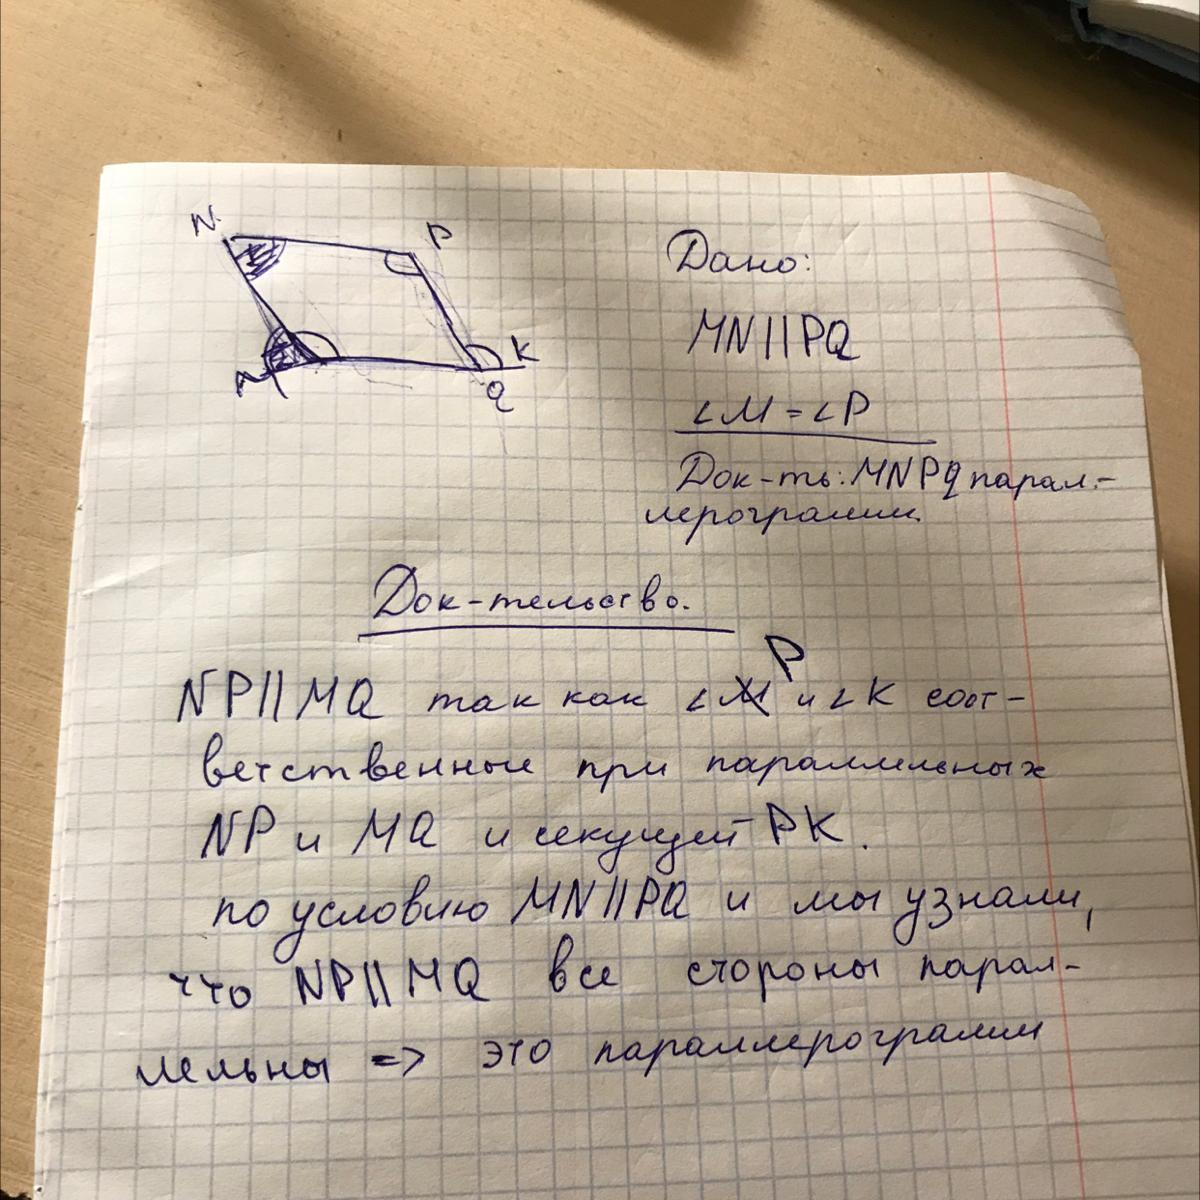 N
P
K
Q
Дано:
MN||PQ
∠M = ∠P
Док-ть: MNPQ парал-
лерограмм.
Док-тельство.
P
NP||MQ так как ∠ и ∠K соот-
ветственные при параллельных
NP и MQ и секущей PK.
по условию MN||PQ и мы узнали,
что NP||MQ все стороны парал-
лельны => это параллерограмм